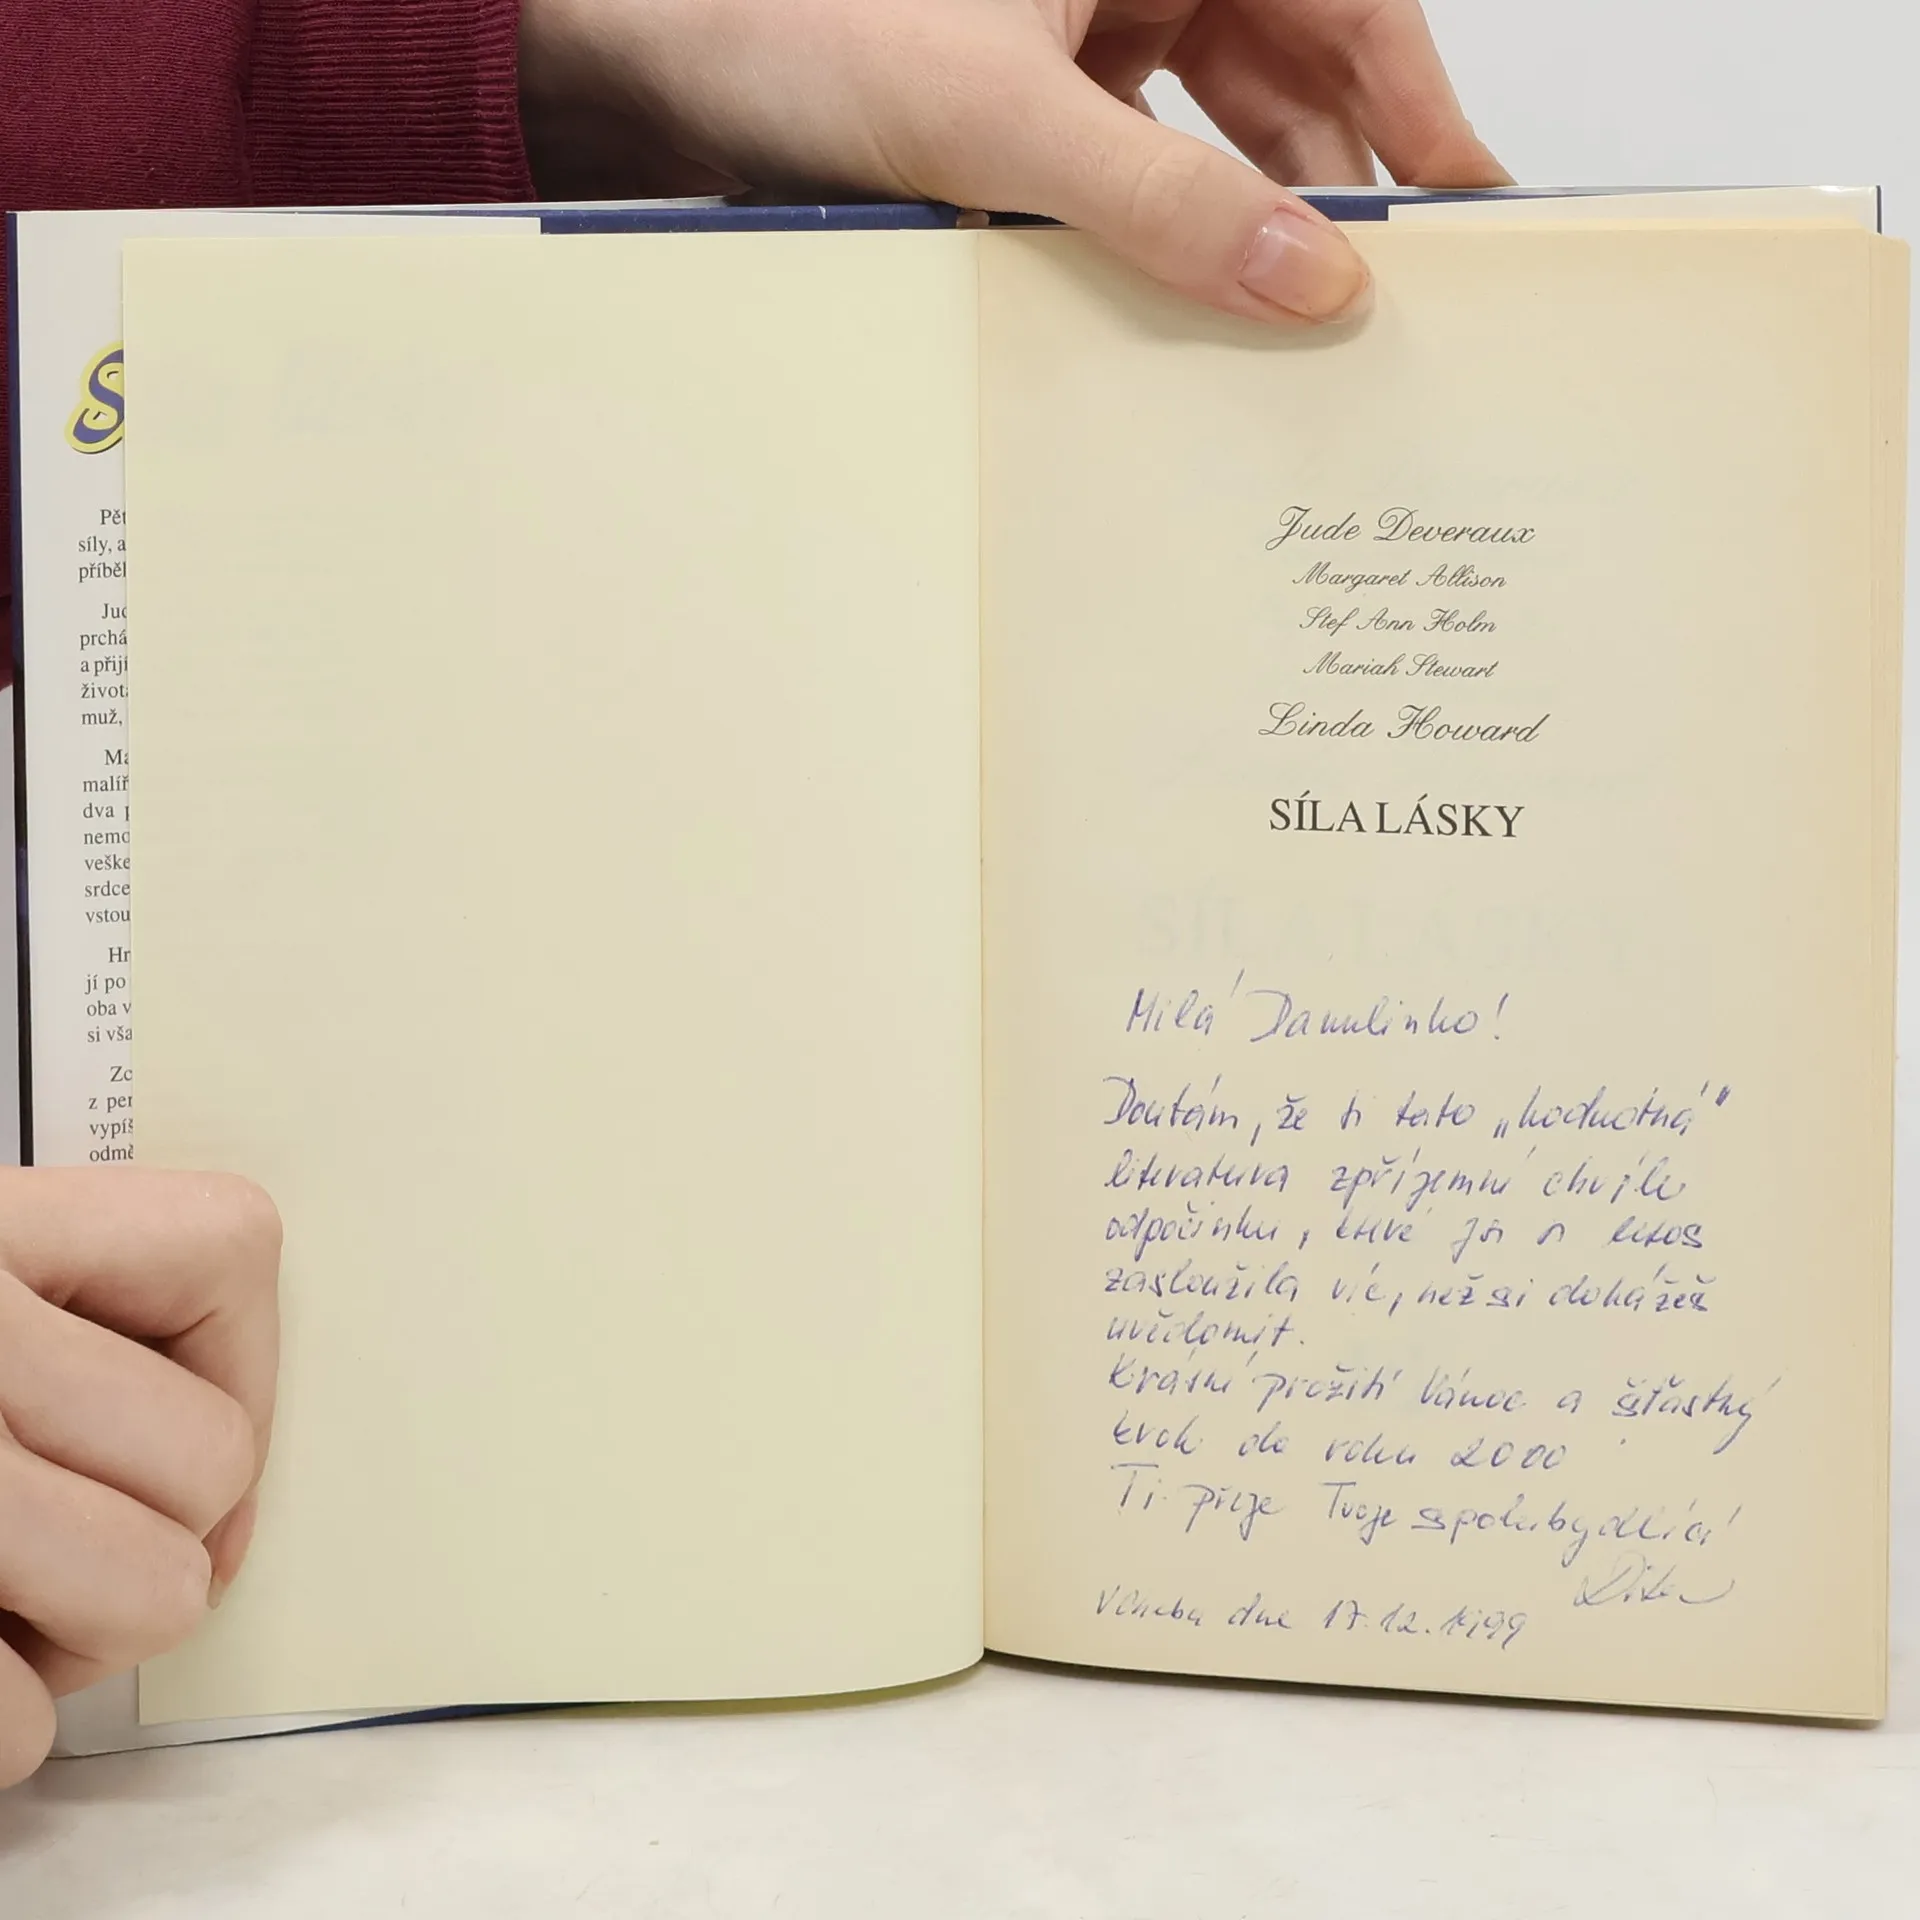 S
Pět
síly, a
příběl
Jud
prchá
a přijí
živote
muž,
Ma
malíř
dva p
nemo
veške
srdce
vstou
Hr
jí po
oba v
si vša
Zc
z per
vypíš
odmě
Jude Deveraux
Margaret Allison
Stef Ann Holm
Mariah Stewart
Linda Howard
SÍLA LÁSKY
Milá Danulinko!
Doufám, že ti tato „hodnotná"
literatura zpříjemní chvíle
odpočinku, které jsi si letos
zasloužila víc, než si dokážeš
uvědomit.
Krásné prožití Vánoc a šťastný
krok do roku 2000
Ti přeje Tvoje spolubydlící
Dita
dne 17.12.1999